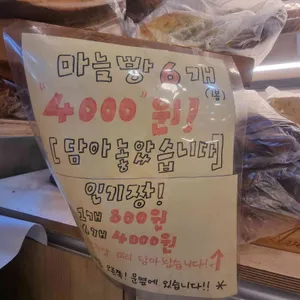 마늘빵 6개
(봉)
"4000"원!
[담아놓았습니다]
인기짱!
1개 800원
6개 4000원
담아놨습니다!↑
운명에 있습니다!! *